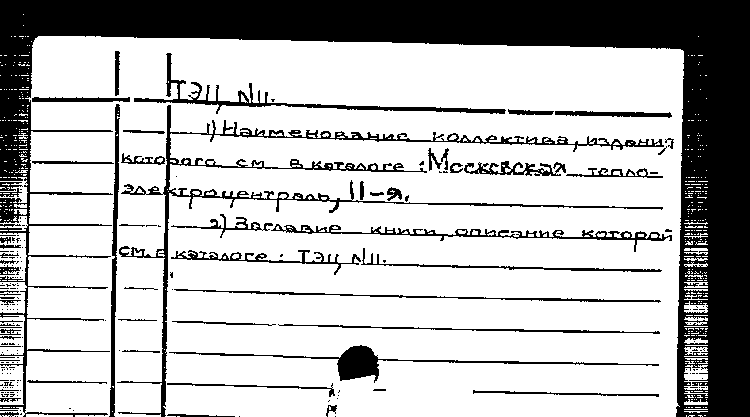 ТЭЦ N11.
1) Наименование коллектива, издания
которого см. в каталоге: Московская тепло-
электроцентраль, 11-я.
2) Заглавие книги, описание которой
см. в каталоге: ТЭЦ N11.